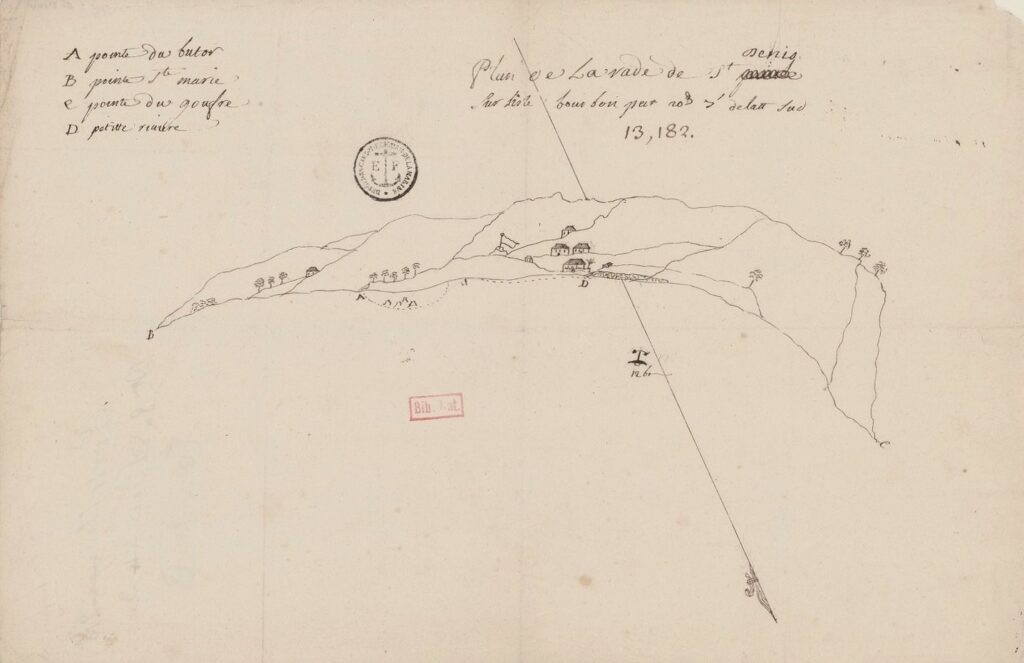 A pointe du butor
B pointe Ste marie
C pointe du goufre
D petitte riviere
Denis
Plan de La rade de St
Sur L'isle bourbon par 20d 5' de latt Sud
13,182.
DE LA MARINE
E F
A
D
B
12b
Bib. Nat.
C